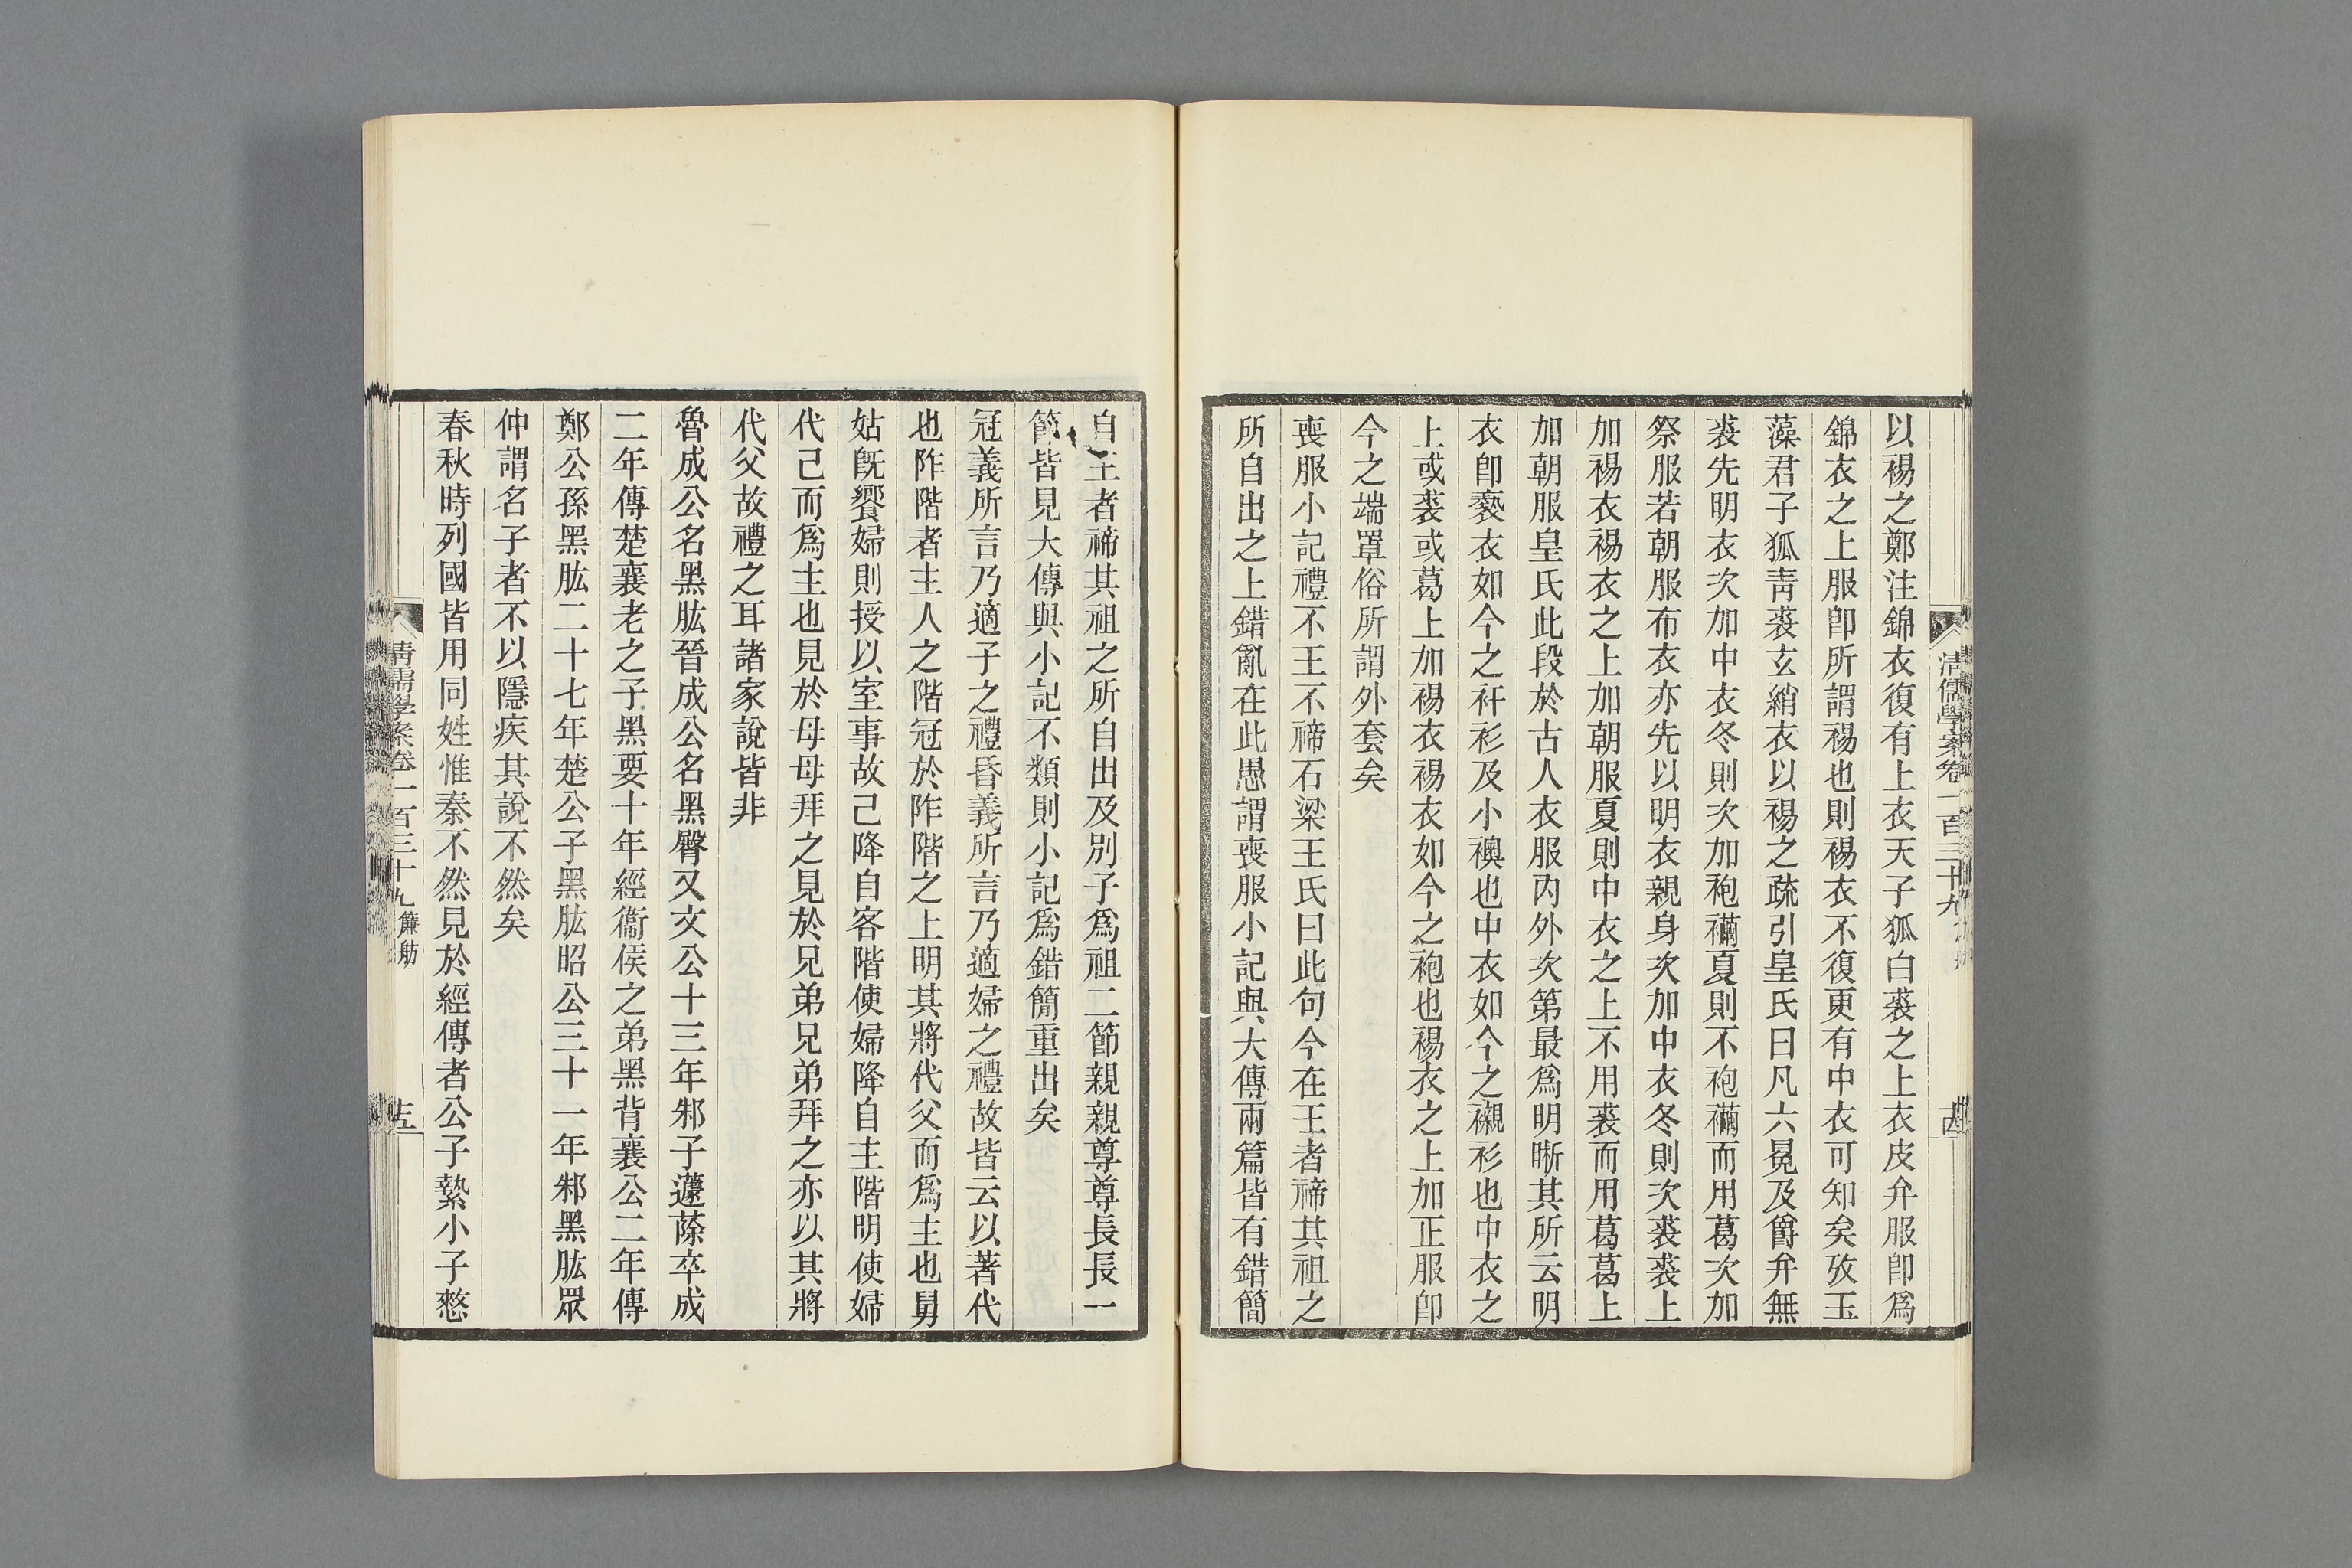 清儒學案卷一百三十九
十四
以裼之鄭注錦衣復有上衣天子狐白裘之上衣皮弁服卽爲
錦衣之上服卽所謂裼也則裼衣不復更有中衣可知矣攷玉
藻君子狐靑裘玄綃衣以裼之疏引皇氏曰凡六冕及爵弁無
裘先明衣次加中衣冬則次加袍襺夏則不袍襺而用葛次加
祭服若朝服布衣亦先以明衣親身次加中衣冬則次裘裘上
加裼衣裼衣之上加朝服夏則中衣之上不用裘而用葛葛上
加朝服皇氏此段於古人衣服內外次第最爲明晰其所云明
衣卽褻衣如今之衦衫及小襖也中衣如今之襯衫也中衣之
上或裘或葛上加裼衣裼衣如今之袍也裼衣之上加正服卽
今之端罩俗所謂外套矣
喪服小記禮不王不禘石梁王氏曰此句今在王者禘其祖之
所自出之上錯亂在此愚謂喪服小記與大傳兩篇皆有錯簡
自王者禘其祖之所自出及別子爲祖二節親親尊尊長長一
節皆見大傳與小記不類則小記爲錯簡重出矣
冠義所言乃適子之禮昏義所言乃適婦之禮故皆云以著代
也阼階者主人之階冠於阼階之上明其將代父而爲主也舅
姑旣饗婦則授以室事故己降自客階使婦降自主階明使婦
代己而爲主也見於母母拜之見於兄弟兄弟拜之亦以其將
代父故禮之耳諸家說皆非
魯成公名黑肱晉成公名黑臀又文公十三年邾子蘧蒢卒成
二年傳楚襄老之子黑要十年經衞侯之弟黑背襄公二年傳
鄭公孫黑肱二十七年楚公子黑肱昭公三十一年邾黑肱眾
仲謂名子者不以隱疾其說不然矣
春秋時列國皆用同姓惟秦不然見於經傳者公子縶小子憖
清儒學案卷一百三十九 簾舫
十五